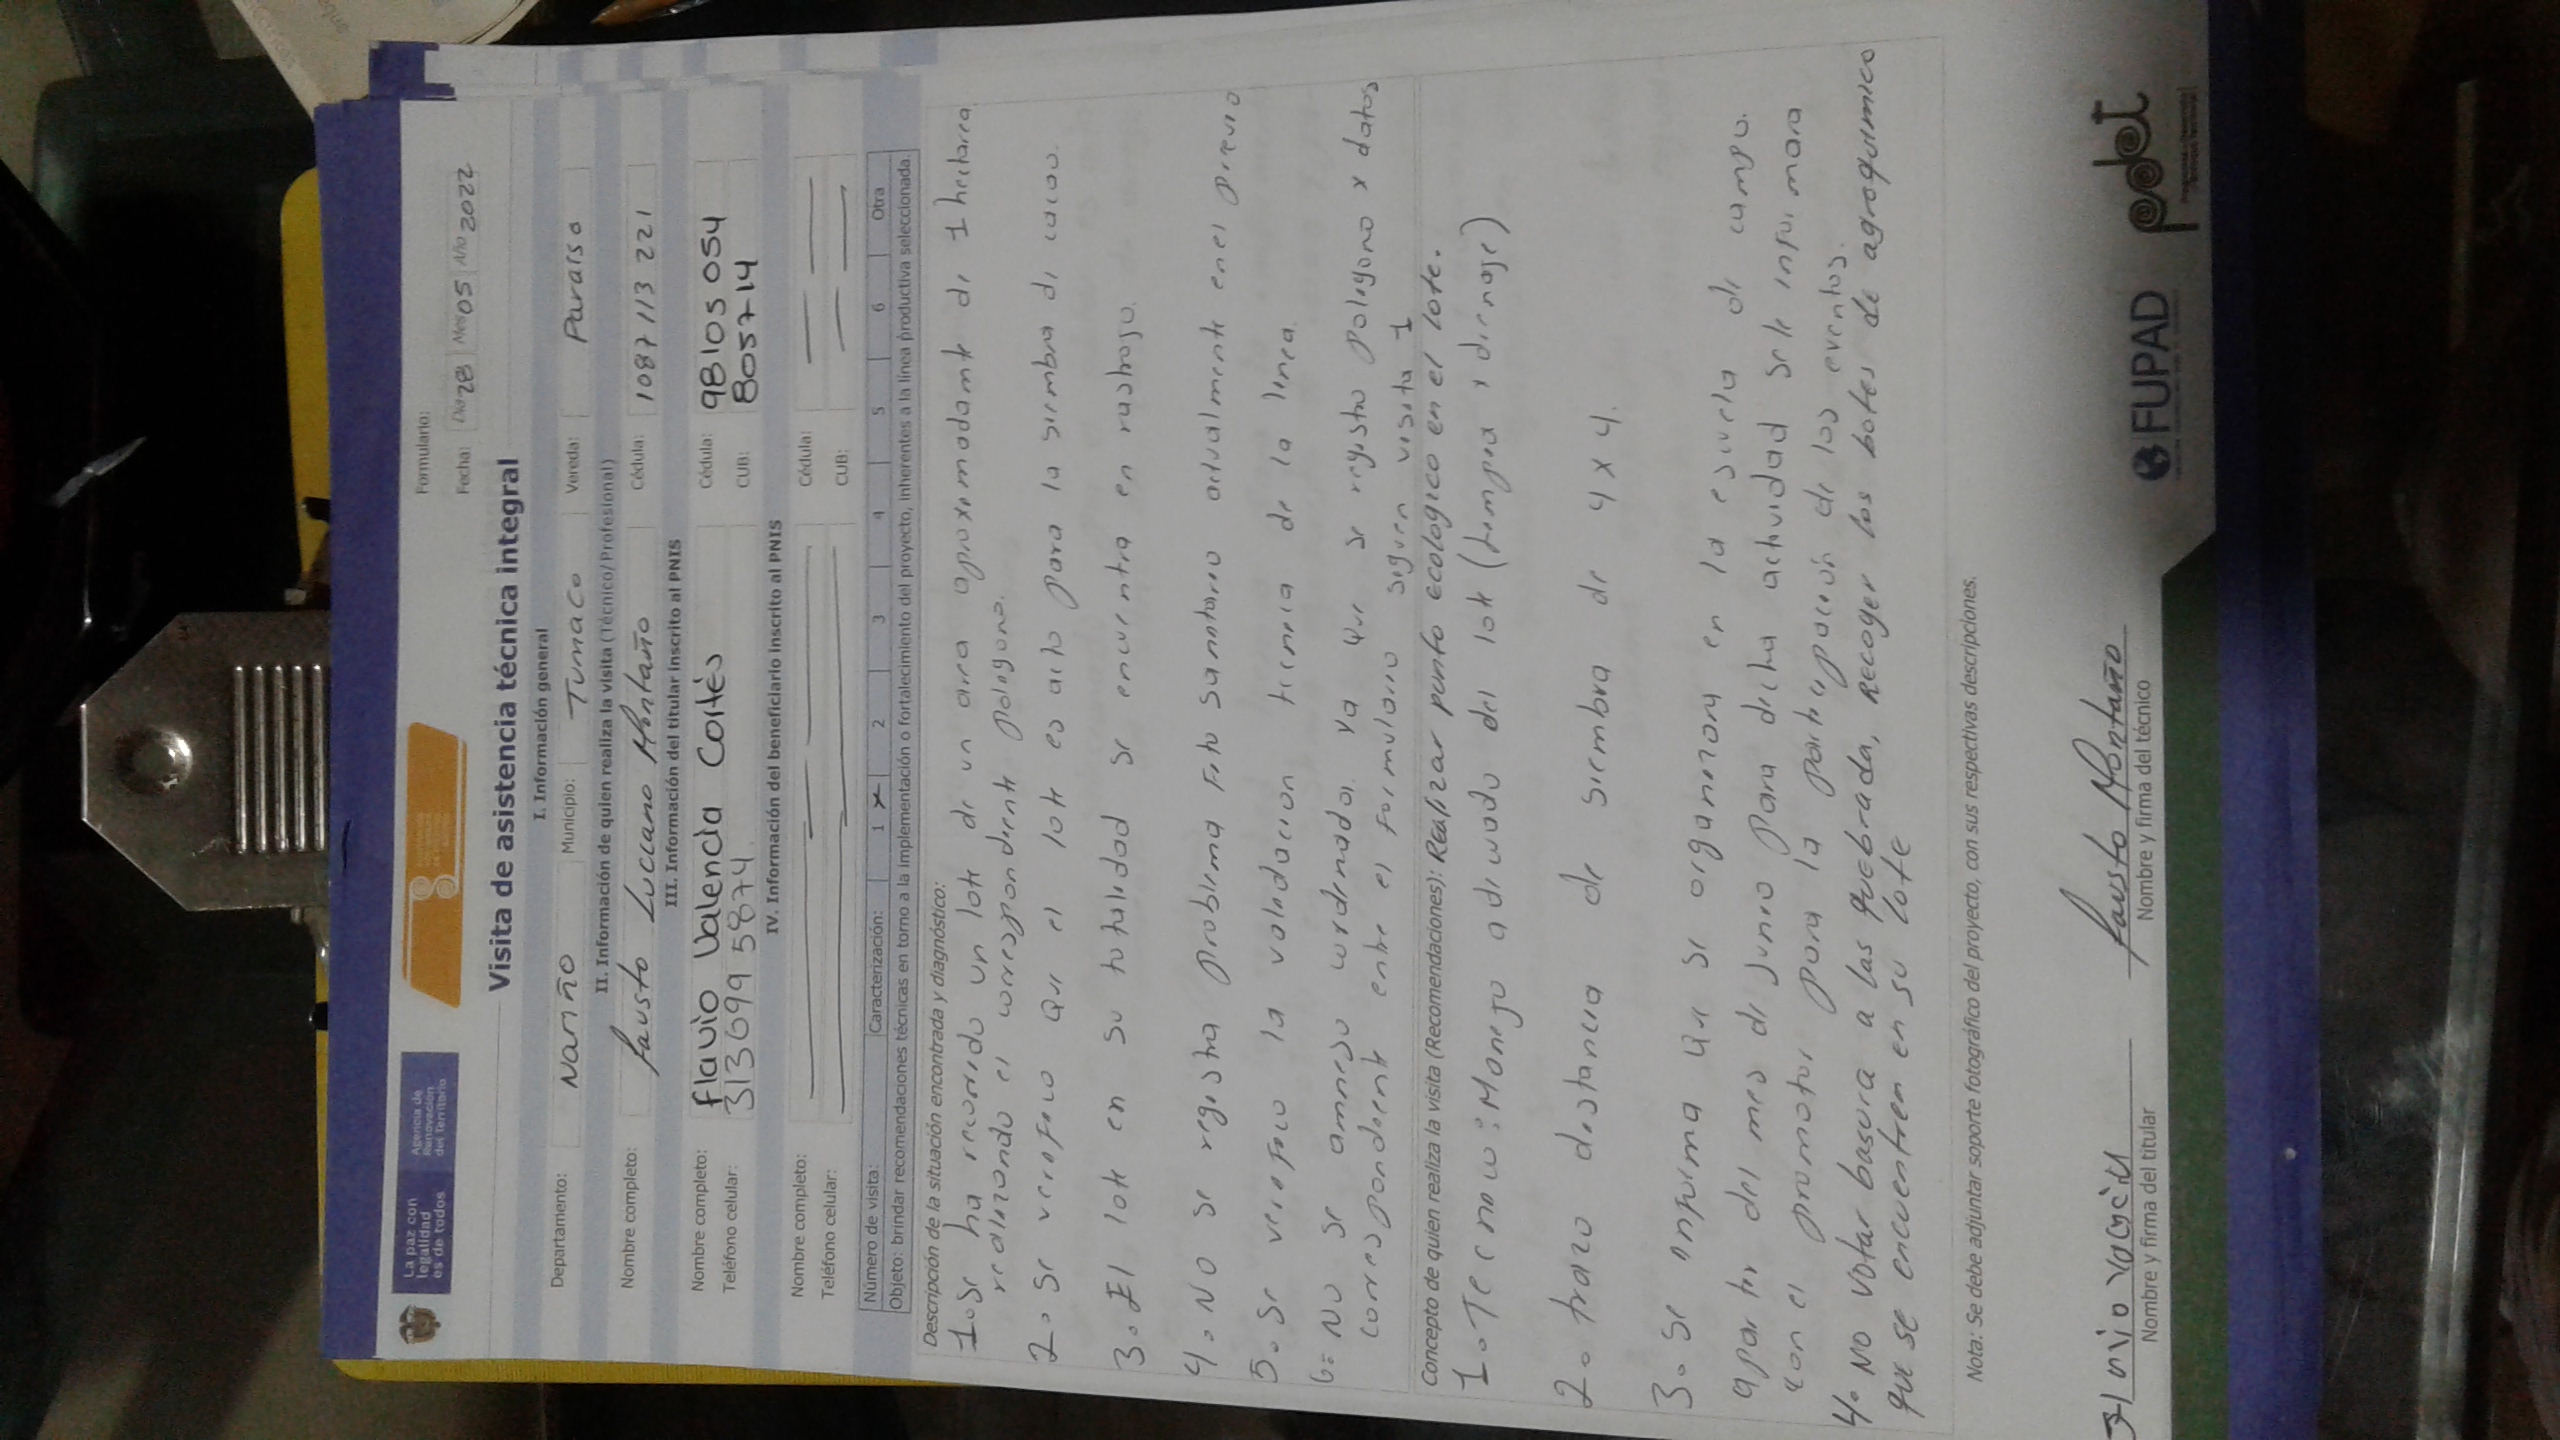 La paz con
legalidad
es de todos
Agencia de
Renovación
del Territorio
Formulario:
Fecha: Día 28 Mes 05 Año 2022
Visita de asistencia técnica integral
I. Información general
Departamento: Nariño Municipio: Tumaco Vereda: Paraiso
II. Información de quien realiza la visita (Técnico/Profesional)
Nombre completo: Fausto Luciano Montaño Cédula: 1087113221
III. Información del titular inscrito al PNIS
Nombre completo: Flavio Valencia Cortès Cédula: 98105054
Teléfono celular: 3136995874 CUB: 805714
IV. Información del beneficiario inscrito al PNIS
Nombre completo: Cédula:
Teléfono celular: CUB:
Número de visita: Caracterización: 1 x 2 3 4 5 6 Otra
Objeto: brindar recomendaciones técnicas en torno a la implementación o fortalecimiento del proyecto, inherentes a la línea productiva seleccionada.
Descripción de la situación encontrada y diagnóstico:
1. Se ha recorrido un lote de un area aproximadamte de 1 hectarea
realizando el correspondiente poligono.
2. Se verifico que el lote es acto para la siembra de cacao.
3. El lote en su totalidad se encuentra en rastrojo.
4. No se registra problema fito sanitario actualmente en el previo
5. Se verifico la validacion tecnica de la linea.
6= No se anneso cordenadas ya que se registro poligono x datos
correspondiente entre el formulario seguen visita 1
Concepto de quien realiza la visita (Recomendaciones): Realizar punto ecologico en el lote.
1. Tecnico: Manejo adecuado del lote (Limpia y drenaje)
2. trazo distancia de siembra de 4 x 4.
3. Se informa que se organizara en la escuela de campo.
apartir del mes de junio para dicha actividad se le informara
con el promotor para la participación de los eventos.
4. No votar basura a las quebrada, Recoger los botes de agroquimico
que se encuentren en su lote
Nota: Se debe adjuntar soporte fotográfico del proyecto, con sus respectivas descripciones.
Fausto Montaño
Nombre y firma del titular
Nombre y firma del técnico
FUPAD
pdet